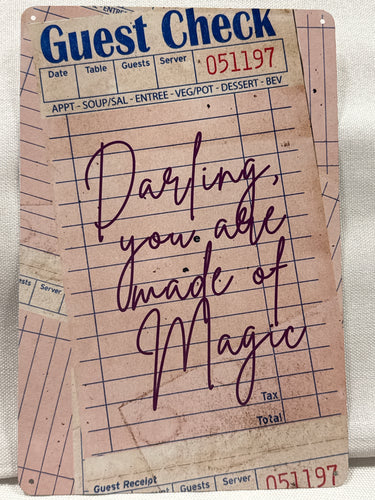 ENTRE
Guest Check
Date Table Guests Server 051197
APPT - SOUP/SAL - ENTREE - VEG/POT - DESSERT - BEV
Darling,
you are
made of
Magic
ests Server
Tax
Total
Guest Receipt
Guests Server 051197